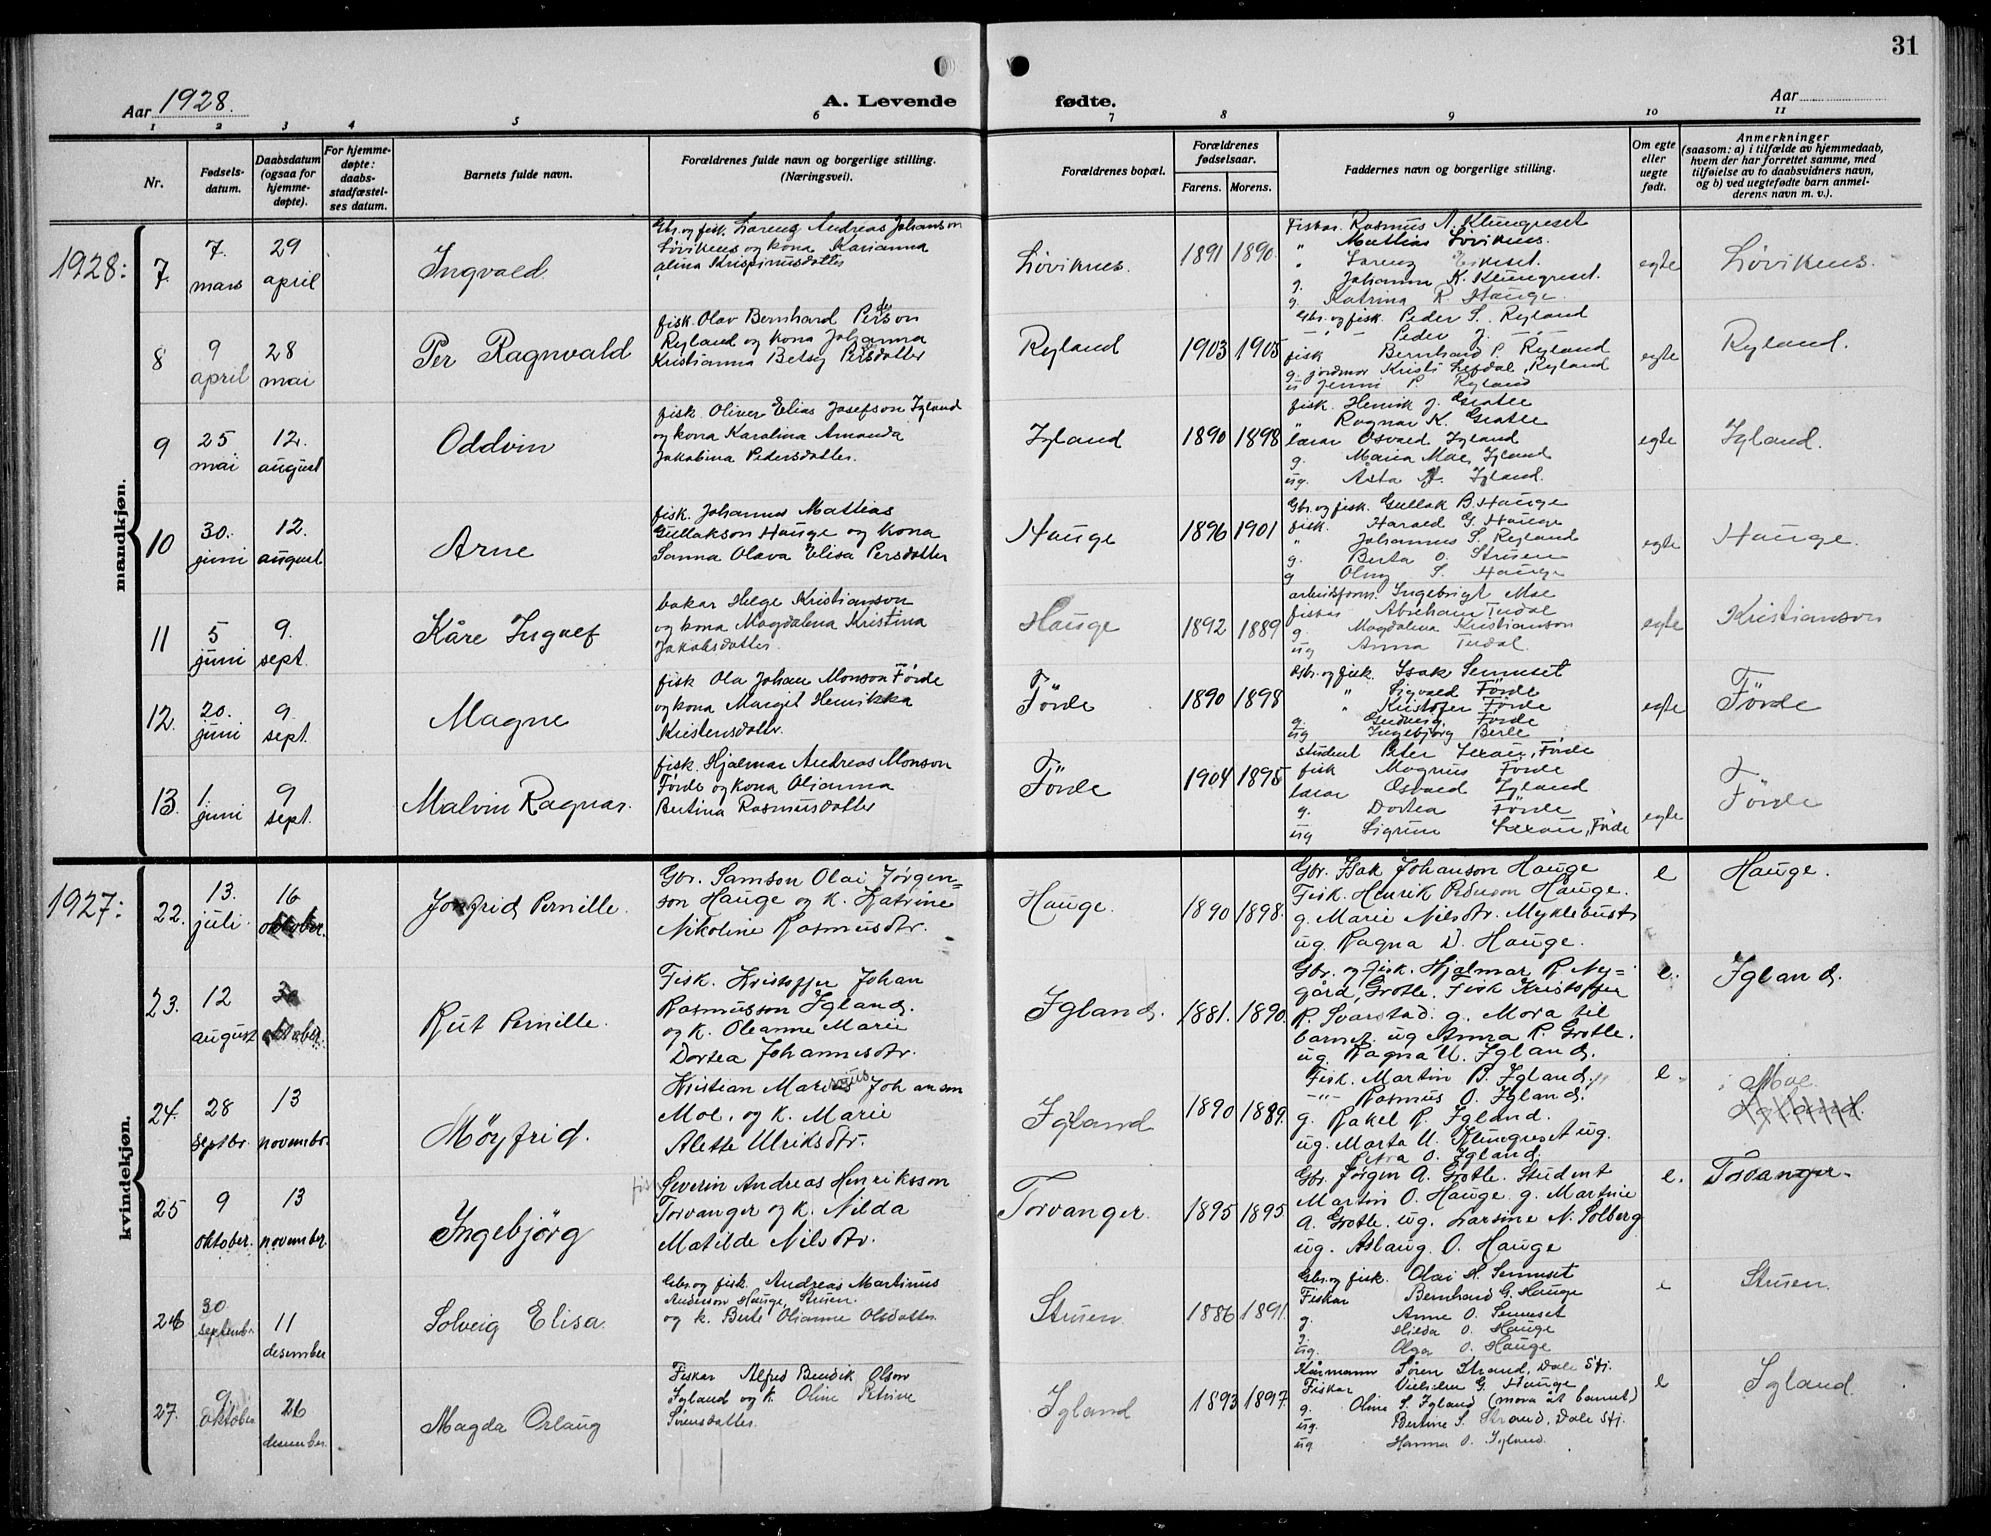 31
Aar 1928.
A. Levende fødte.
Aar
1 2 3 4 5 6 7 8 9 10 11
Nr.
Fødsels-
datum.
Daabsdatum
(ogsaa for
hjemme-
døpte).
For hjemme-
døpte:
daabs-
stadfæstel-
ses datum.
Barnets fulde navn.
Forældrenes fulde navn og borgerlige stilling.
(Næringsvei).
Forældrenes bopæl.
Forældrenes
fødselsaar.
Farens. Morens.
Faddernes navn og borgerlige stilling.
Om egte
eller
uegte
født.
Anmerkninger
(saasom: a) i tilfælde av hjemmedaab,
hvem der har forrettet samme, med
tilføielse av to daabsvidners navn,
og b) ved uegtefødte barn anmel-
derens navn m. v.).
mandkjøn.
1928:
7.
7.
mars
29
april
Ingvald
Gbr. og fisk. Lorens Andreas Johanson
Løviknes og kona Karianna
Alina Krispinusdotter
Løviknes.
1891 1890.
Fiskar. Rasmus A. Klungreset
" Mattias Løviknes.
" Lorens
g. Johanna K. Klungreset.
g. Katrina R. Hauge.
egte
Løviknes.
8
9
april
28
mai
Per Ragnvald
fisk. Olav Bernhard Person
Ryland og kona Johanna
Kristianna Betsy Persdotter
Ryland
1903 1905
Gbr. og fisk. Peder S. Ryland
— " — Peder J. — " —
fisk Bernhard P. Ryland
g. jordmor Kristi Lefdal, Ryland
ug Jenni P. Ryland
egte
Ryland.
9
25
mai
12.
august
Oddvin
fisk. Oliver Elias Josefson Igland
og kona Karolina Amanda
Jakobina Pedersdotter.
Igland
1890 1898
fisk. Henrik J. Grotle
" Ragnar K. Grotle
lærar Osvald Igland
g. Maria Moe, Igland
ug. Åsta Igland.
egte
Igland.
10
30.
juni
12.
august
Arne
fisk. Johannes Mattias
Gullakson Hauge og kona
Sanna Olava Elisa Persdotter
Hauge
1896 1901
Gbr. og fisk. Gullak B. Hauge
fisk. Harald G. Hauge
" Johannes S. Ryland
g. Berta O. Struen
g Olny S. Hauge
egte
Hauge.
11
5
juni
9.
sept.
Kåre Ingolf
bakar Helge Kristianson
og kona Magdalena Kristina
Jakobsdotter.
Hauge
1892 1889
arbeidsform. Ingebrigt Moe
fiskar Abraham Tudal
g. Magdalena Kristianson
ug Anna Tudal.
egte
Kristianson
12.
20.
juni
9.
sept.
Magne
fisk Ola Johan Monson Förde
og kona Margit Henrikka
Kristensdotter.
Förde
1890 1898
Gbr. og fisk. Isak Senneset
" Sigvald Förde
" Kristofer Förde
g. Gudveig Förde
ug Ingebjörg Berle
egte
Förde
13.
1.
juni
9
sept.
Malvin Ragnar.
fisk. Hjalmar Andreas Monson
Förde og kona Olianna
Bertina Rasmusdotter
Förde
1904 1895
student Peter Lexau, Förde
fisk Magnus Förde
lærar Osvald Igland
g. Dortea Förde
ug Sigrun Lexau, Förde
egte
Förde
kvindekjøn.
1927:
22.
13.
juli
16
oktober.
Jonfrid Pernille.
Gbr. Samson Olai Jørgen=
son Hauge og k. Katrine
Nikoline Rasmusdtr.
Hauge.
1890 1898.
Gbr. Isak Johanson Hauge
Fisk. Henrik Pederson Hauge.
g. Marie Nilsdtr. Myklebust
ug. Ragna D. Hauge.
e
Hauge.
23.
12
august
oktober.
Rut Pernille.
Fisk. Kristoffer Johan
Rasmusson Igland.
og k. Oleanne Marie
Dortea Johannesdtr.
Igland.
1881. 1890.
Gbr. og fisk. Hjalmar R. Ny=
gård, Grotle. Fisk Kristoffer
R. Svarstad. g. Mora til
barnet. ug Anna R. Grotle.
ug. Ragna U. Igland.
e.
Igland.
24.
28
septbr.
13
novembr.
Møyfrid.
Kristian Marius Johanson
Moe, og k. Marie
Alette Ulriksdtr.
Igland
1890 1889.
Fisk. Martin B. Igland.
— " — Rasmus O. Igland.
g. Rakel R. Igland.
ug. Marta U. Klungreset ug.
Petra O. Igland.
e.
Moe
Igland.
25
9
oktober.
13
november.
Ingebjörg
Severin Andreas Henriksson
Torvanger og k. Nilda
Matilde Nilsdtr.
Torvanger.
1895 1895
Gbr. Jørgen A. Grotle. Student
Martin O. Hauge. g. Martine
A. Grotle. ug. Larsine N. Solberg
ug. Aslaug. O. Hauge
e.
Torvanger.
26
30
septembr.
11
desember
Solveig Elisa.
Gbr. og fisk. Andreas Martinus
Anderson Hauge, Struen.
og k. Berte Olianne Olsdotter
Struen
1886 1891.
Gbr. og fisk. Olai H. Sennset
Fiskar Bernhard G. Hauge
g. Anne O. Sennset
g. Hilda O. Hauge
ug. Olga O. Hauge
e
Struen.
27.
9
oktober
26
desember.
Magda Orlaug
Fiskar Alfred Bendik Olson
Igland og k. Oline Petrine
Sørensdotter.
Igland
1893 1897.
Kårmann Søren Strand, Dale Stj.
Fiskar Vilhelm G. Hauge
g. Oline S. Igland (mora åt barnet)
ug. Bertine S. Strand, Dale Stj.
ug Hanna O. Igland.
e
Igland